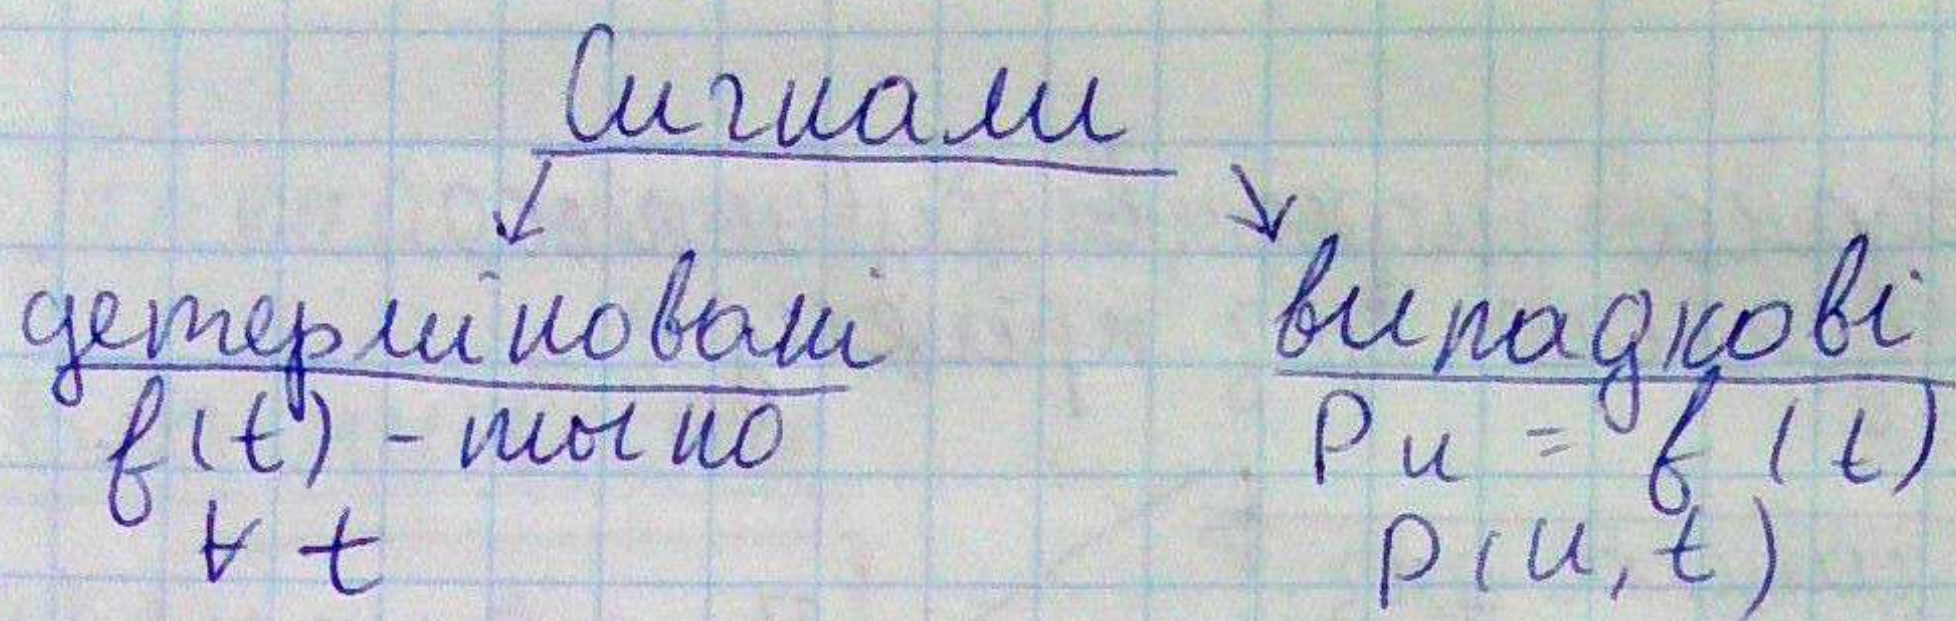 Сигнали
↙ ↘
детерміновані
f(t) - точно
∀ t
випадкові
Pu = f(t)
p(u,t)